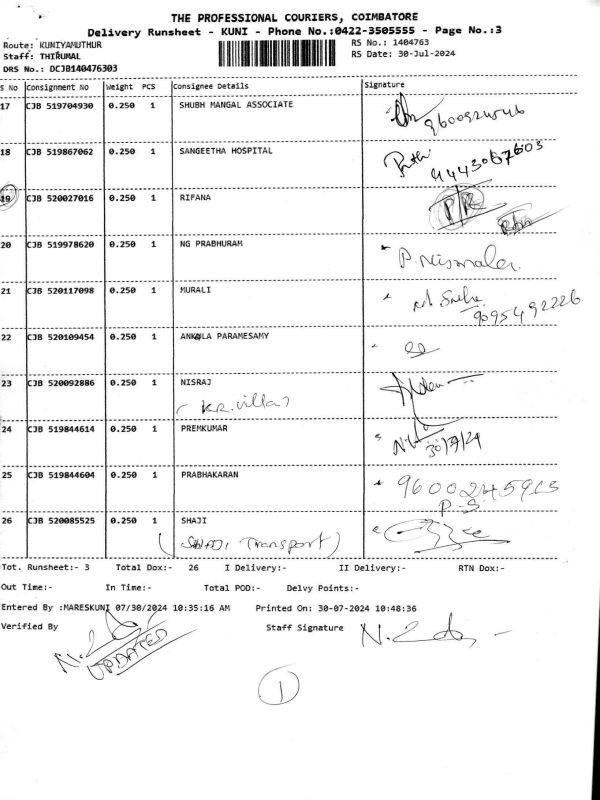 THE PROFESSIONAL COURIERS, COIMBATORE
Delivery Runsheet - KUNI - Phone No.:0422-3505555 - Page No.:3
Route: KUNIYAMUTHUR RS No.: 1404763
Staff: THIRUMAL RS Date: 30-Jul-2024
DRS No.: DCJB140476303
S No Consignment No Weight PCS Consignee Details Signature
17 CJB 519704930 0.250 1 SHUBH MANGAL ASSOCIATE
18 CJB 519867062 0.250 1 SANGEETHA HOSPITAL 9443067603
19 CJB 520027016 0.250 1 RIFANA PR
20 CJB 519978620 0.250 1 NG PRABHURAM P. Nirmala
21 CJB 520117098 0.250 1 MURALI
9095492226
22 CJB 520109454 0.250 1 ANKALA PARAMESAMY
23 CJB 520092886 0.250 1 NISRAJ
(K.R. Villa)
24 CJB 519844614 0.250 1 PREMKUMAR
30/7/24
25 CJB 519844604 0.250 1 PRABHAKARAN
P.S
26 CJB 520085525 0.250 1 SHAJI
(SHAJI Transport)
Tot. Runsheet:- 3 Total Dox:- 26 I Delivery:- II Delivery:- RTN Dox:-
Out Time:- In Time:- Total POD:- Delvy Points:-
Entered By :MARESKUNI 07/30/2024 10:35:16 AM Printed On: 30-07-2024 10:48:36
Verified By Staff Signature
UPDATED
1